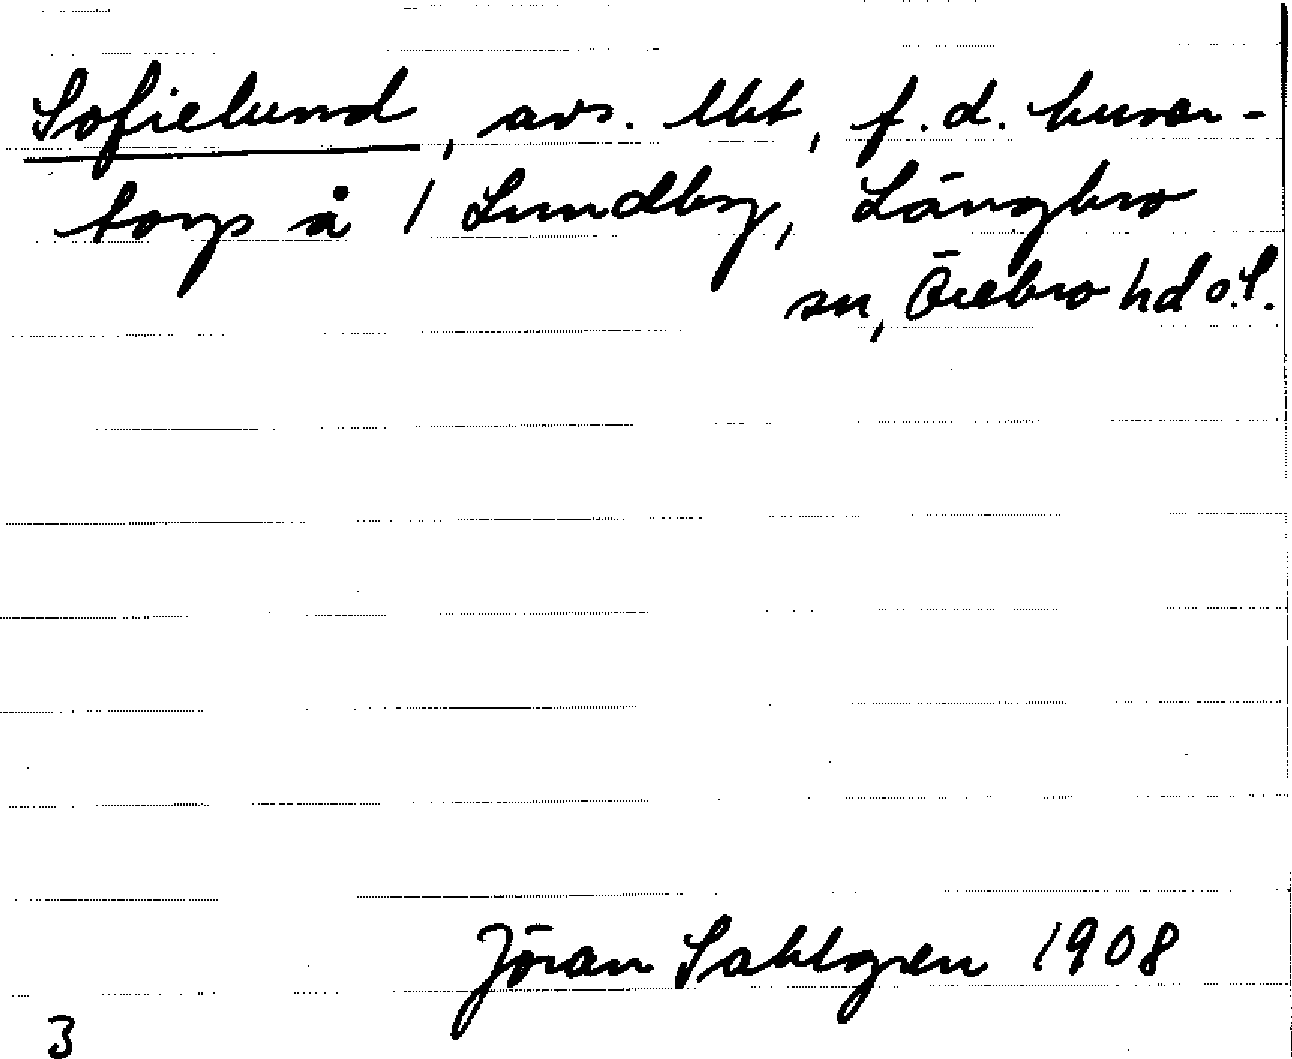 Sofielund, avs. lht, f.d. kvarn-
torp å 1 Lundby, Längbro
sn, Örebro hd o.l.
Jöran Sahlgren 1908
3